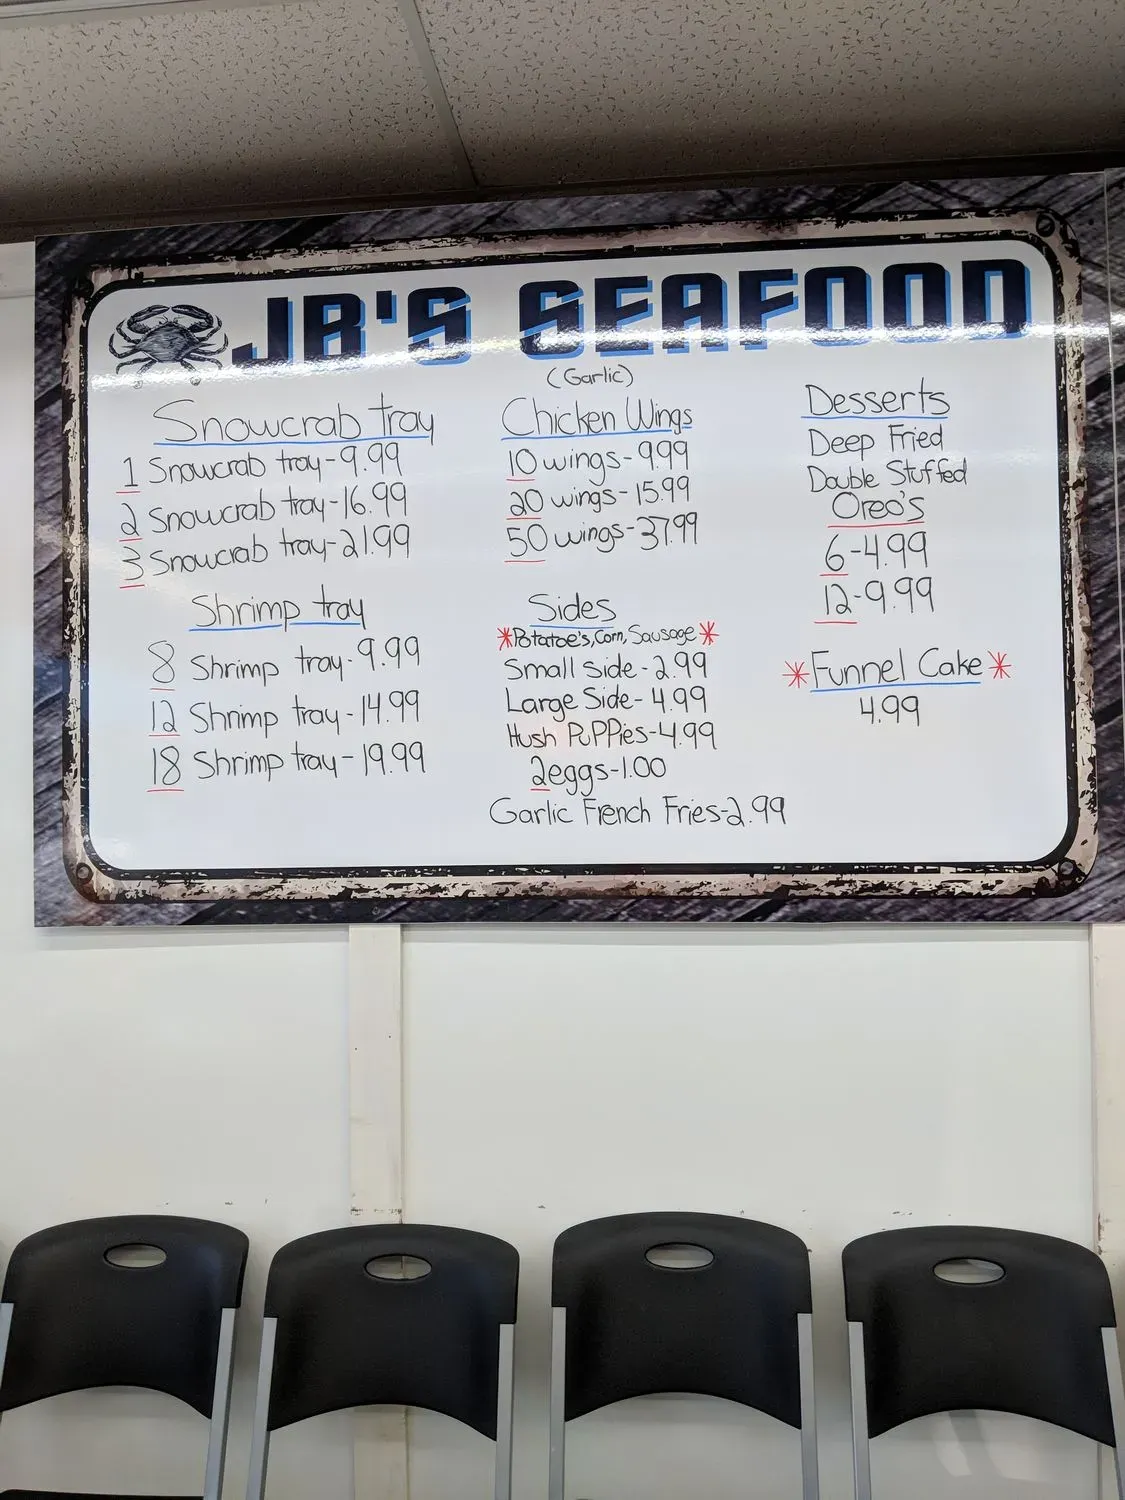 JB'S SEAFOOD
Snowcrab tray
1 Snowcrab tray-9.99
2 Snowcrab tray-16.99
3 Snowcrab tray-21.99
Shrimp tray
8 Shrimp tray-9.99
12 Shrimp tray-14.99
18 Shrimp tray-19.99
(Garlic)
Chicken Wings
10 wings-9.99
20 wings-15.99
50 wings-37.99
Sides
*Potatoe's, Corn, Sausage*
Small side-2.99
Large Side-4.99
Hush PuPPies-4.99
2eggs-1.00
Garlic French Fries-2.99
Desserts
Deep Fried
Double Stuffed
Oreo's
6-4.99
12-9.99
*Funnel Cake*
4.99